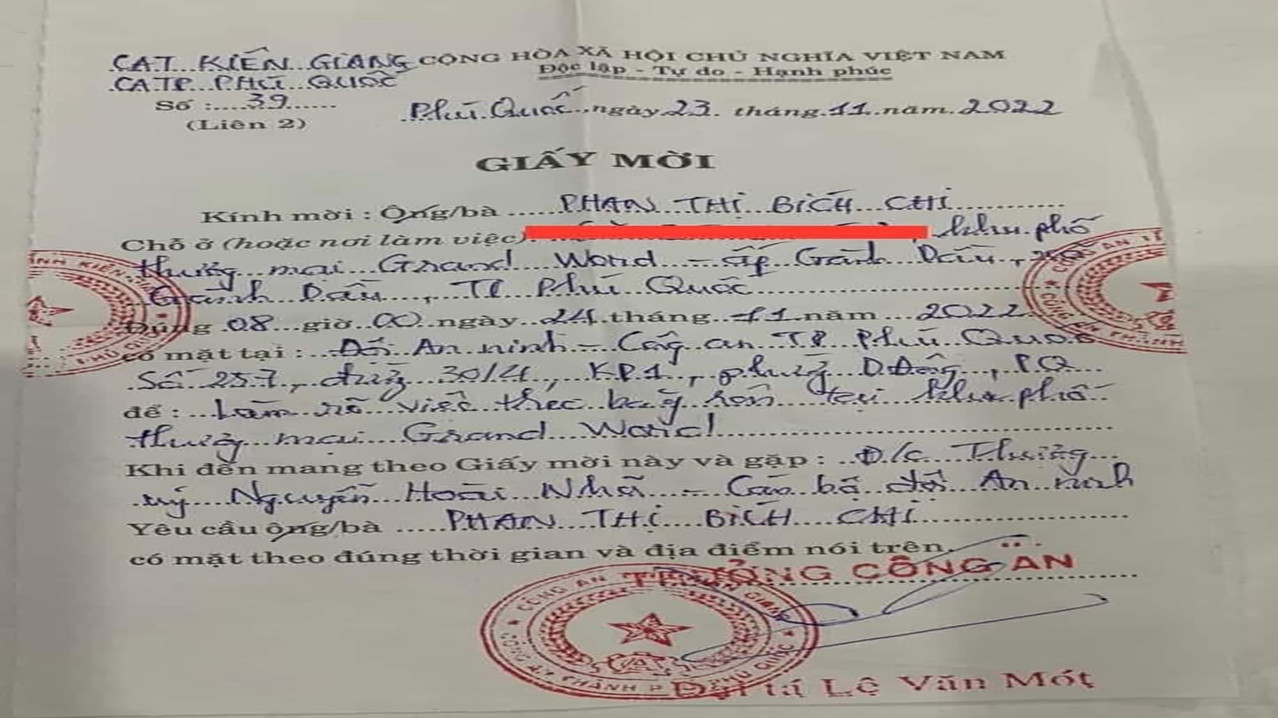 CAT KIÊN GIANG CỘNG HÒA XÃ HỘI CHỦ NGHĨA VIỆT NAM
CATP PHÚ QUỐC Độc lập - Tự do - Hạnh phúc
Số : 39
(Liên 2)
Phú Quốc ngày 23 tháng 11 năm 2022
GIẤY MỜI
Kính mời : Ông/bà PHAN THỊ BÍCH CHI
Chỗ ở (hoặc nơi làm việc): , khu phố
thương mại Grand Word - ấp Gành Dầu,
Gành Dầu, TP Phú Quốc
Đúng 08 giờ 00 ngày 24 tháng 11 năm 2022
có mặt tại : Đội An ninh - Công an TP Phú Quốc
Số 257, đường 30/4, KP1, phường D Đông, PQ
để : Làm rõ việc treo tại khu phố
thương mại Grand World
Khi đến mang theo Giấy mời này và gặp : Đ/c Thượng
uý Nguyễn Hoài Nhã - Cán bộ đội An ninh
Yêu cầu ông/bà PHAN THỊ BÍCH CHI
có mặt theo đúng thời gian và địa điểm nói trên.
TRƯỞNG CÔNG AN
Đại tá Lê Văn Mót